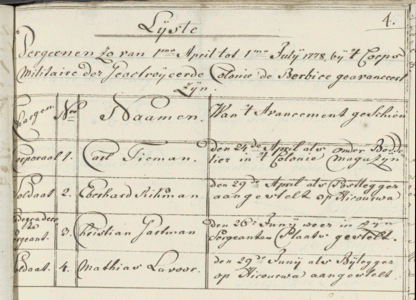 4.
Lyste
Dergeenen zo van pmo April tot 1mo July 1778, by 't Corps
Militaire der Geoctroyeerde Colonie de Berbice geavanceert
zyn.
Chargen No Naamen. Wan 't Avancement geschien
Corporaal 1. Carl Tieman. den 24de April als onder Bott
lier in 't Colonie Magazyn
Soldaat 2. Eberhard Rihman den 29de April als Posthegger
aangesteld op
3. Christian Gartman den 26e Junij weer in zyn
Sergeant. Sergeanten Plaats gestelt.
Soldaat. 4. Mathias Lavoor. den 29e Junij als Bylegger
op aangestelt.